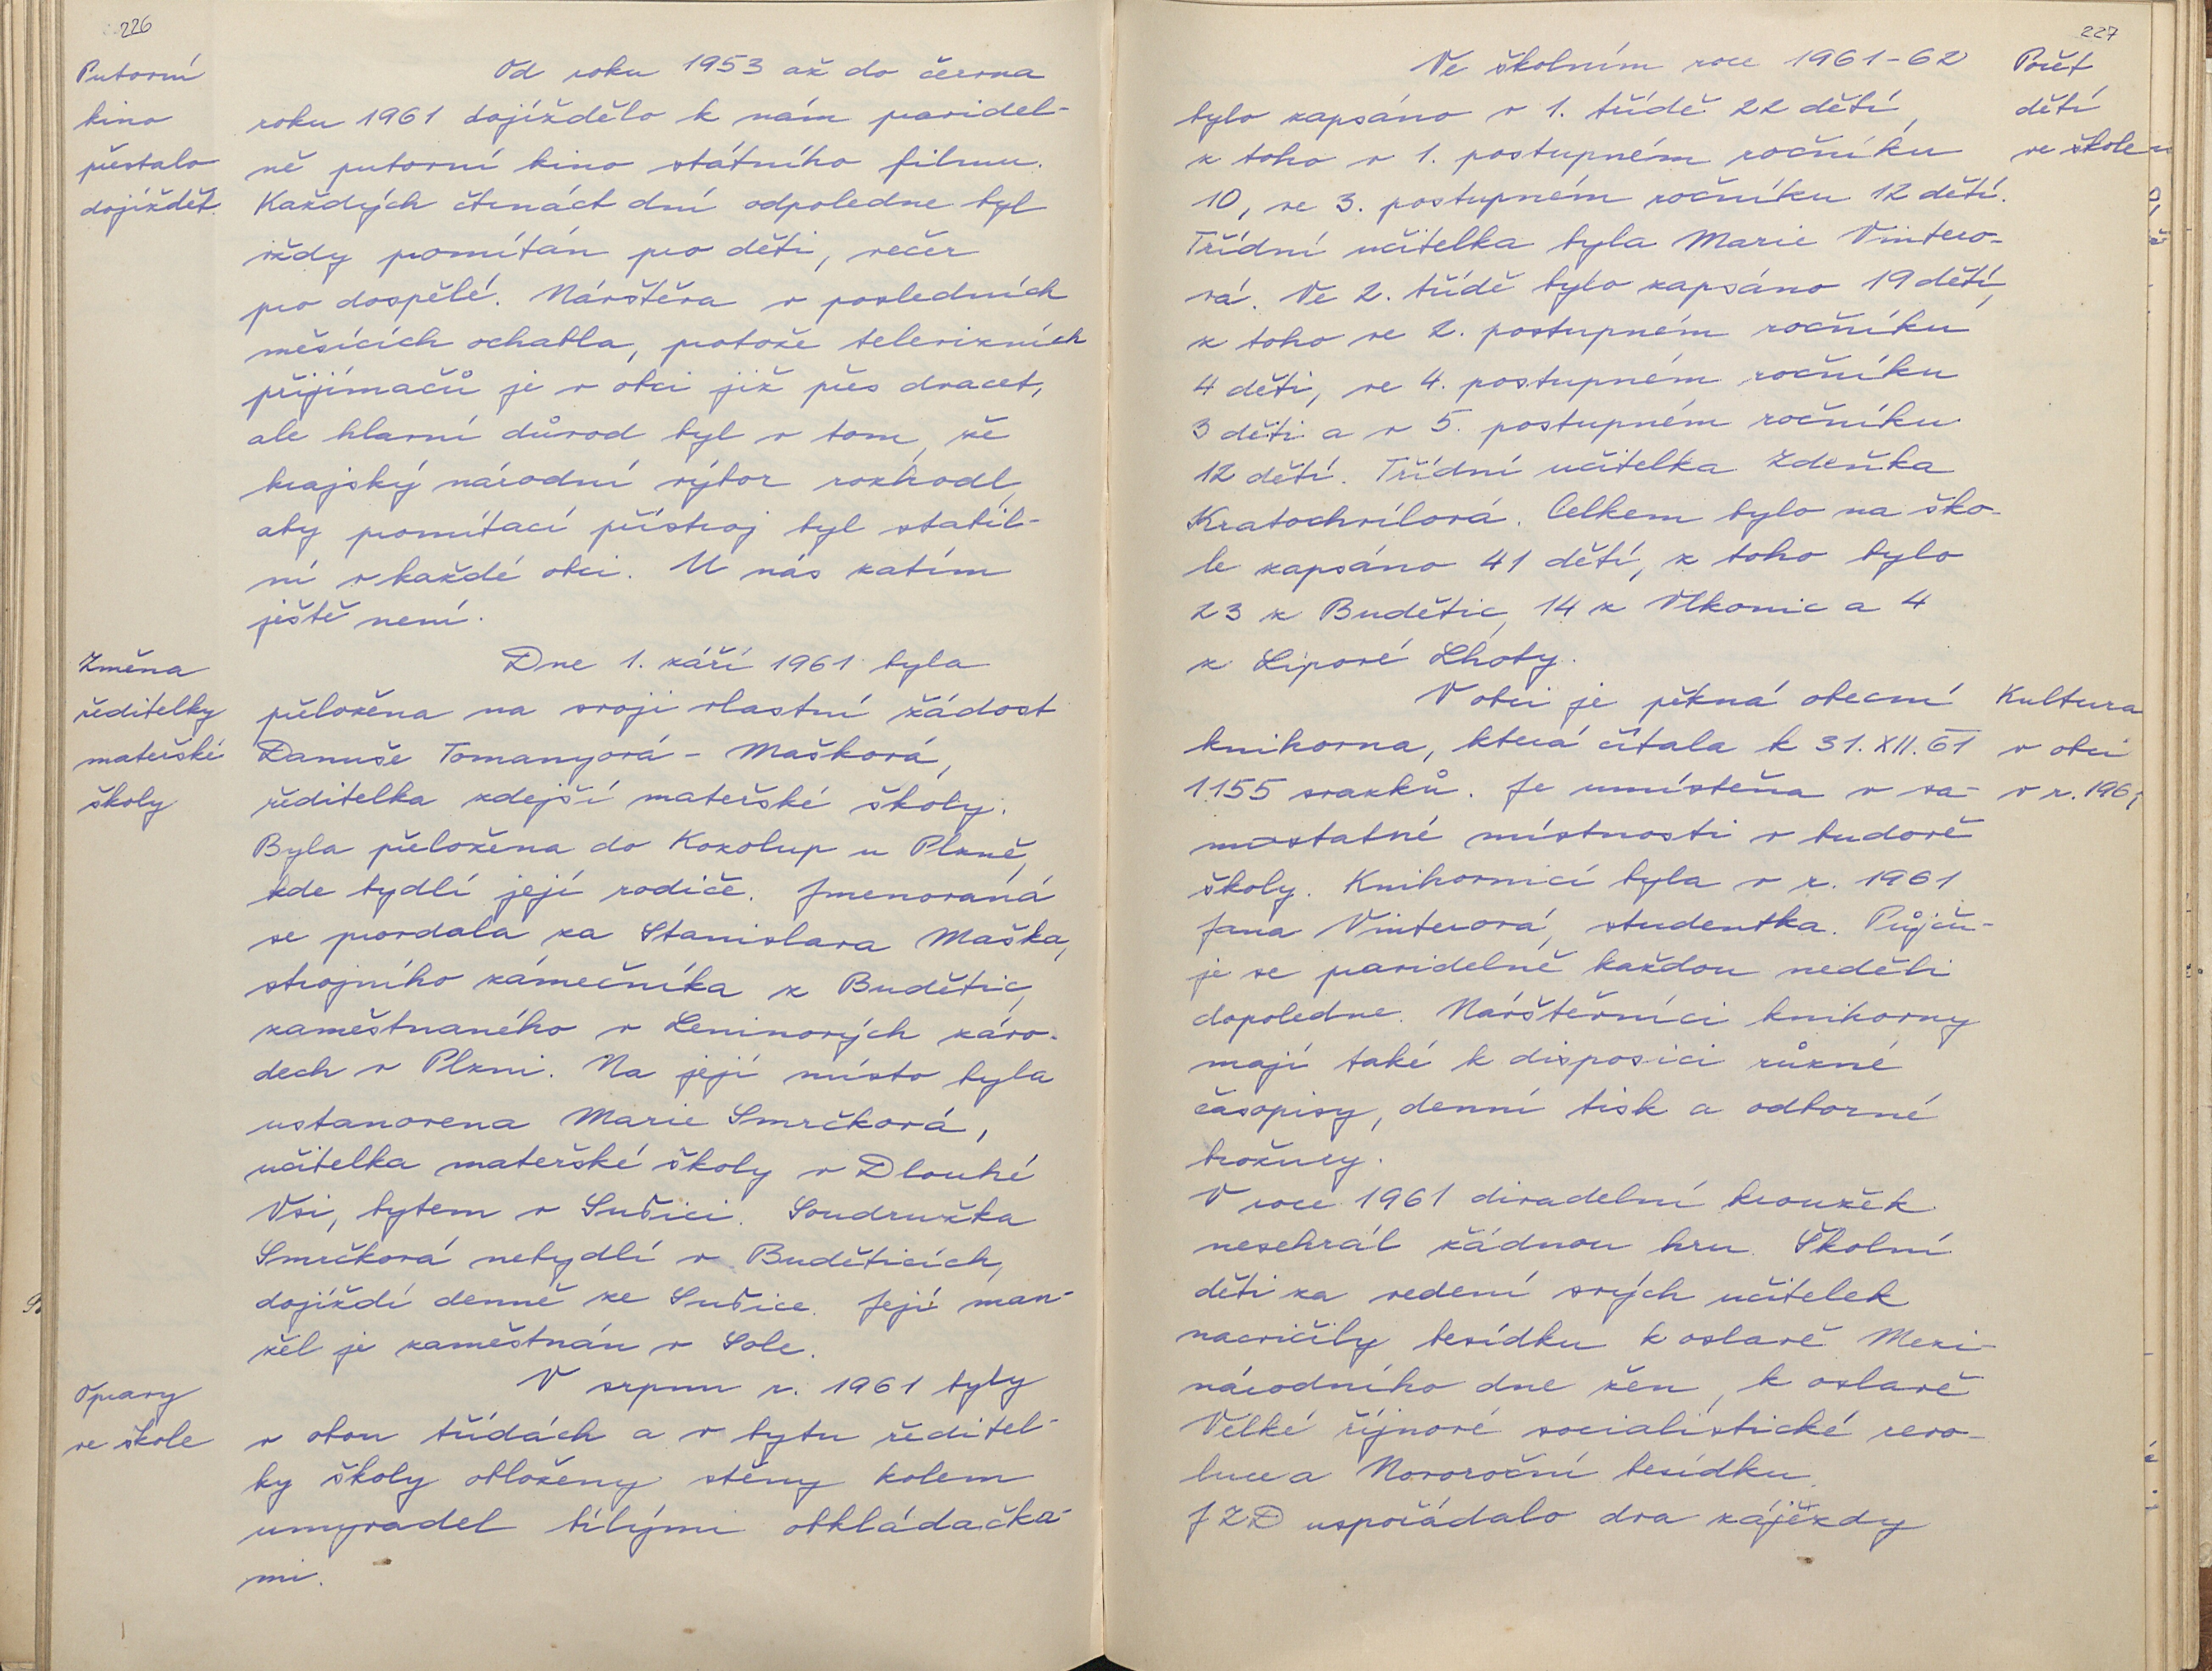 226
Putovní
kino
přestalo
dojíždět.
Od roku 1953 až do června
roku 1961 dojíždělo k nám pravidel-
ně putovní kino státního filmu.
Každých čtrnáct dní odpoledne byl
vždy promítán pro děti, večer
pro dospělé. Návštěva v posledních
měsících ochabla, protože televizních
přijímačů je v obci již přes dvacet,
ale hlavní důvod byl v tom, že
krajský národní výbor rozhodl,
aby promítací přístroj byl stabil-
ní v každé obci. U nás zatím
ještě není.
Změna
ředitelky
mateřské
školy
Dne 1. září 1961 byla
přeložena na svoji vlastní žádost
Danuše Tomanyová - Mašková,
ředitelka zdejší mateřské školy.
Byla přeložena do Kozolup u Plzně,
kde bydlí její rodiče. Jmenovaná
se provdala za Stanislava Maška,
strojního zámečníka z Budětic,
zaměstnaného v Leninových závo-
dech v Plzni. Na její místo byla
ustanovena Marie Smrčková,
učitelka mateřské školy v Dlouhé
Vsi, bytem v Sušici. Soudružka
Smrčková nebydlí v Buděticích,
dojíždí denně ze Sušice. Její man-
žel je zaměstnán v Sole.
Opravy
ve škole
V srpnu r. 1961 byly
v obou třídách a v bytu ředitel-
ky školy obloženy stěny kolem
umyvadel bílými obkládačka-
mi.
227
Ve školním roce 1961-62
bylo zapsáno v 1. třídě 22 dětí,
z toho v 1. postupném ročníku
10, ve 3. postupném ročníku 12 dětí.
Třídní učitelka byla Marie Vintero-
vá. Ve 2. třídě bylo zapsáno 19 dětí,
z toho ve 2. postupném ročníku
4 děti, ve 4. postupném ročníku
3 děti a v 5. postupném ročníku
12 dětí. Třídní učitelka Zdeňka
Kratochvílová. Celkem bylo na ško-
le zapsáno 41 dětí, z toho bylo
23 z Budětic, 14 z Vlkonic a 4
z Lipové Lhoty.
Počet
dětí
ve škole
V obci je pěkná obecní
knihovna, která čítala k 31. XII. 61
1155 svazků. Je umístěna v sa-
mostatné místnosti v budově
školy. Knihovnicí byla v r. 1961
Jana Vinterová, studentka. Půjču-
je se pravidelně každou neděli
dopoledne. Návštěvníci knihovny
mají také k disposici různé
časopisy, denní tisk a odborné
brožury.
Kultura
v obci
v r. 1961
V roce 1961 divadelní kroužek
nesehrál žádnou hru. Školní
děti za vedení svých učitelek
nacvičily besídku k oslavě Mezi-
národního dne žen, k oslavě
Velké říjnové socialistické revo-
luce a Novoroční besídku.
JZD uspořádalo dva zájezdy